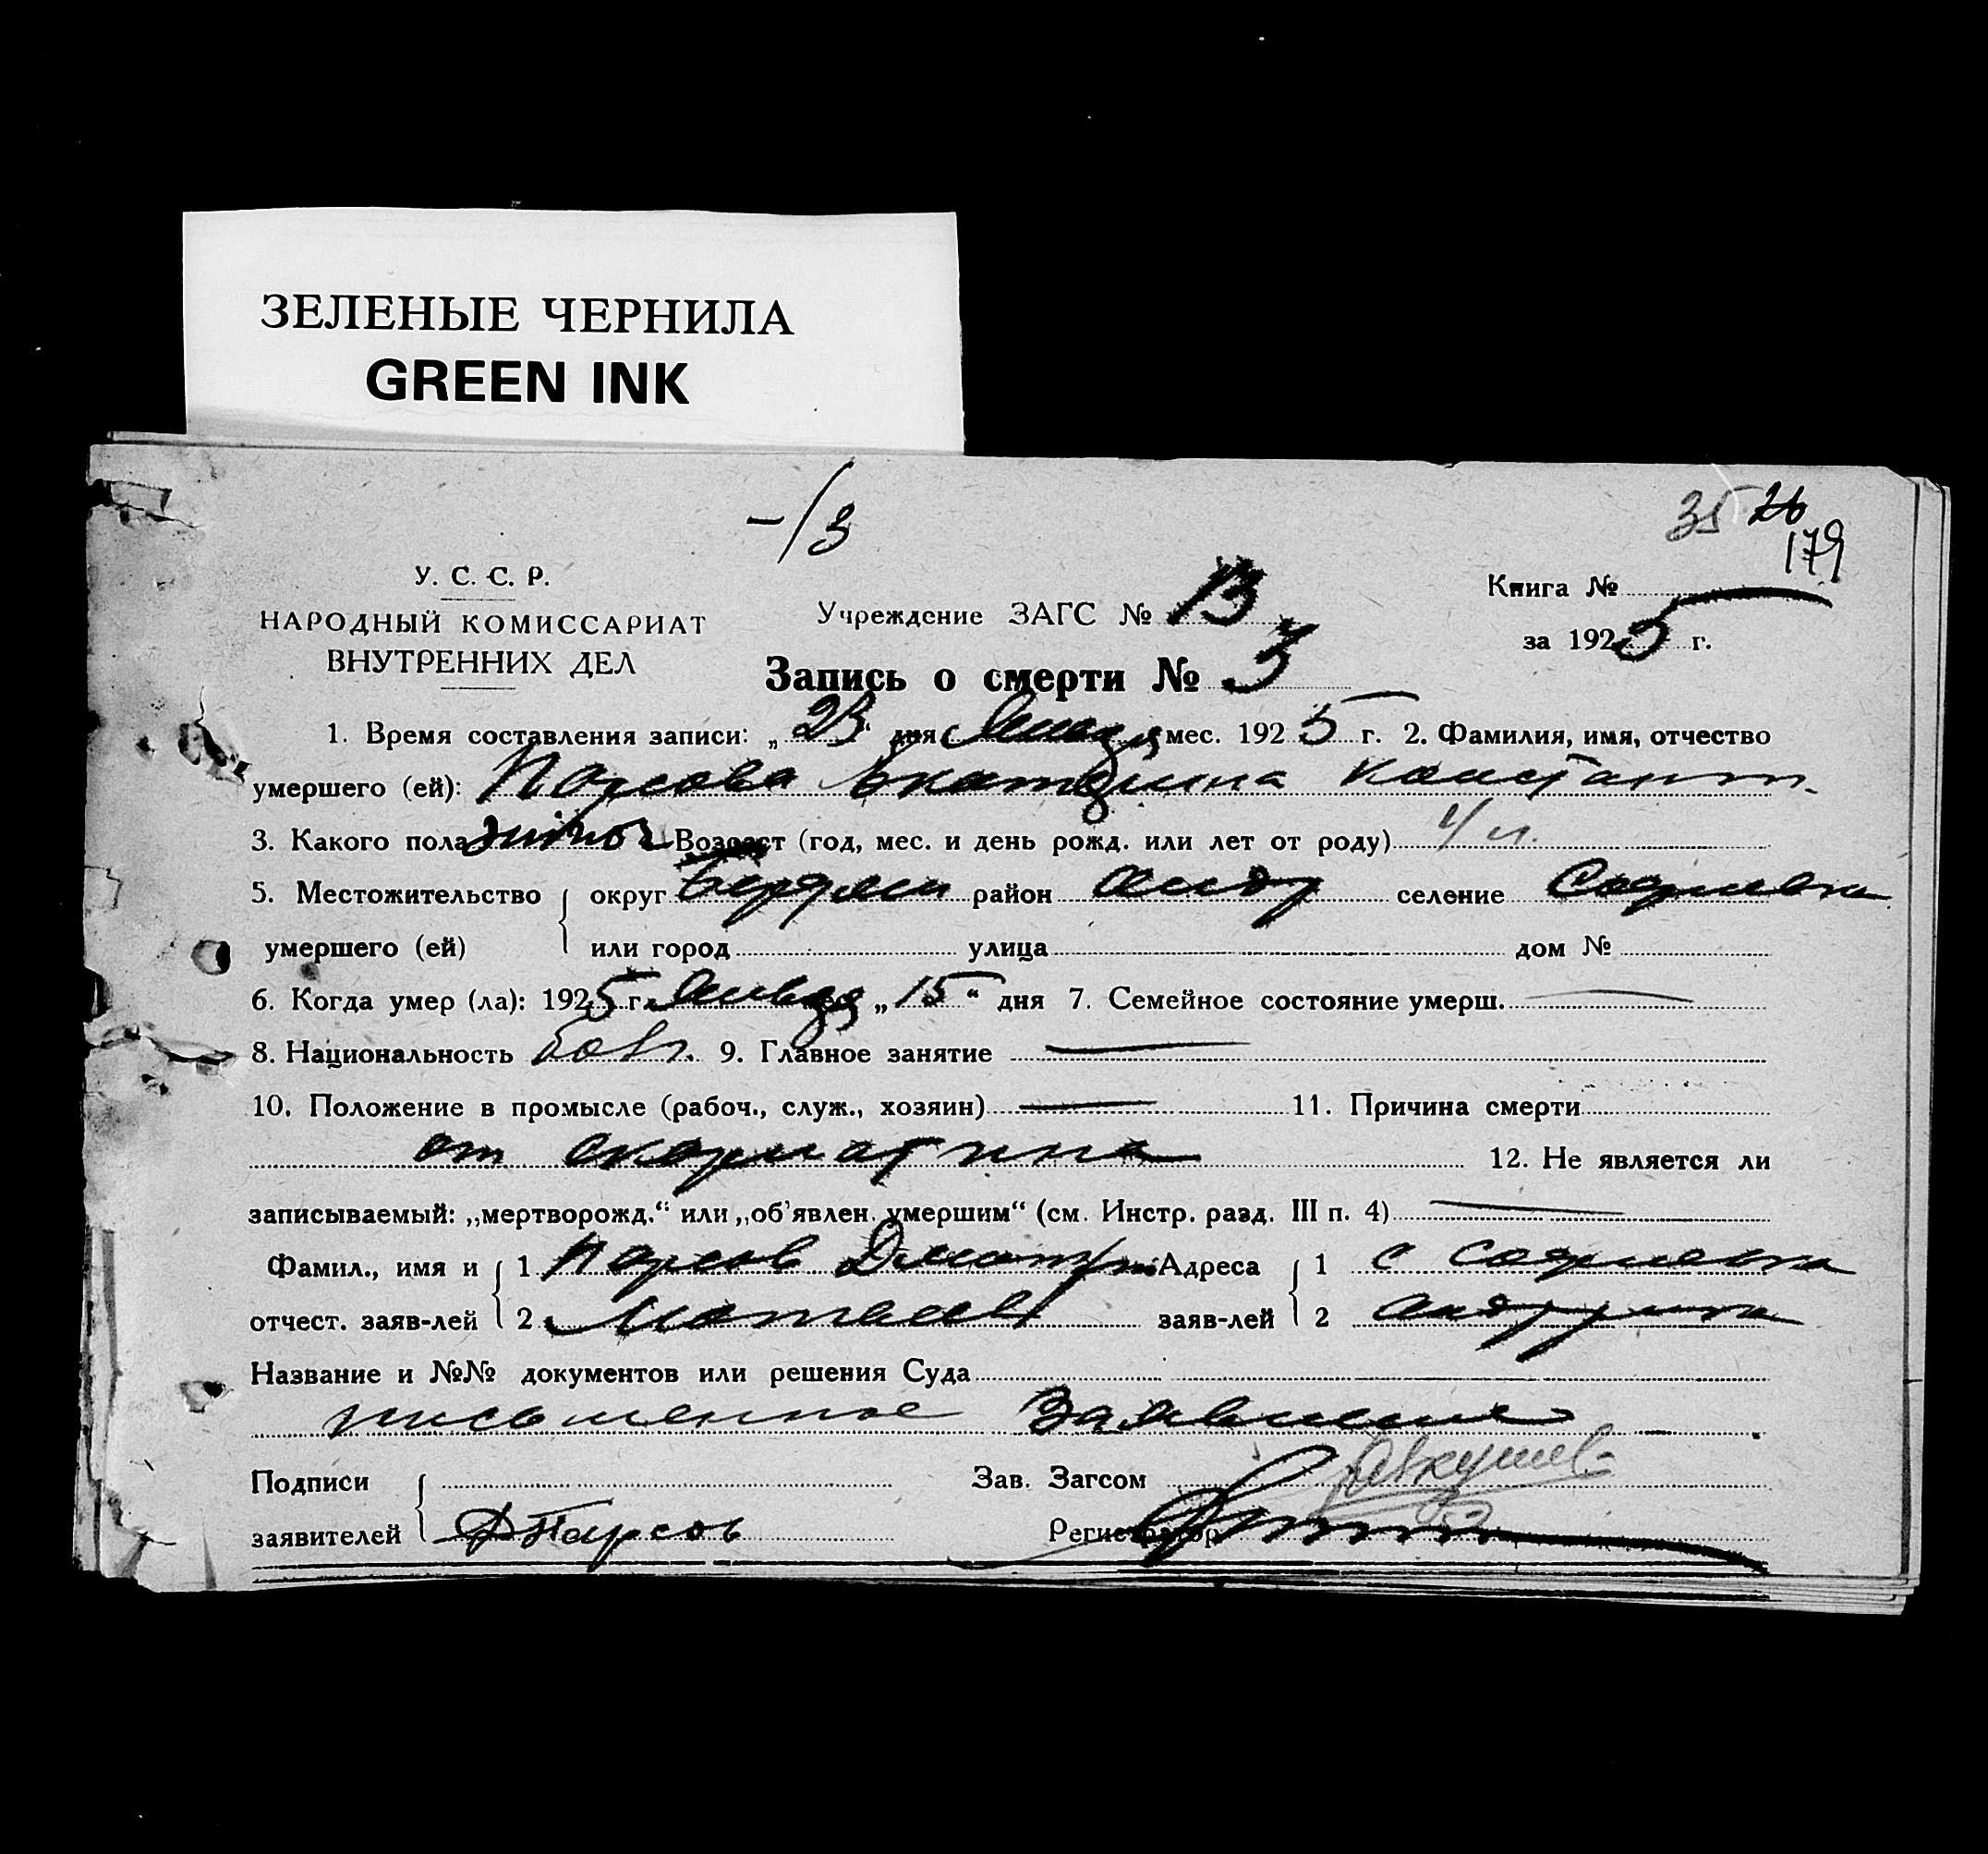 ЗЕЛЕНЫЕ ЧЕРНИЛА
GREEN INK
-/3
35 26
179
У. С. С. Р.
НАРОДНЫЙ КОМИССАРИАТ
ВНУТРЕННИХ ДЕЛ
Учреждение ЗАГС № 13
Книга №
за 1925 г.
Запись о смерти № 3
1. Время составления записи: „23“ дня Января мес. 1925 г. 2. Фамилия, имя, отчество
умершего (ей): Парсова Екатерина Констант.
3. Какого пола Возраст (год, мес. и день рожд. или лет от роду)
5. Местожительство округ Бердян район Андр селение Софиевка
умершего (ей) или город улица дом №
6. Когда умер (ла): 1925 г. Января „15“ дня 7. Семейное состояние умерш.
8. Национальность болг. 9. Главное занятие
10. Положение в промысле (рабоч., служ., хозяин) 11. Причина смерти
от скарлатина 12. Не является ли
записываемый: „мертворожд.“ или „об'явлен. умершим“ (см. Инстр. разд. III п. 4)
Фамил., имя и 1 Парсов Дмитри Адреса 1 с Софиевка
отчест. заяв-лей 2 Матвеев заяв-лей 2
Название и №№ документов или решения Суда
письменное Заявление
Подписи Зав. Загсом
заявителей Д Парсов Регистратор